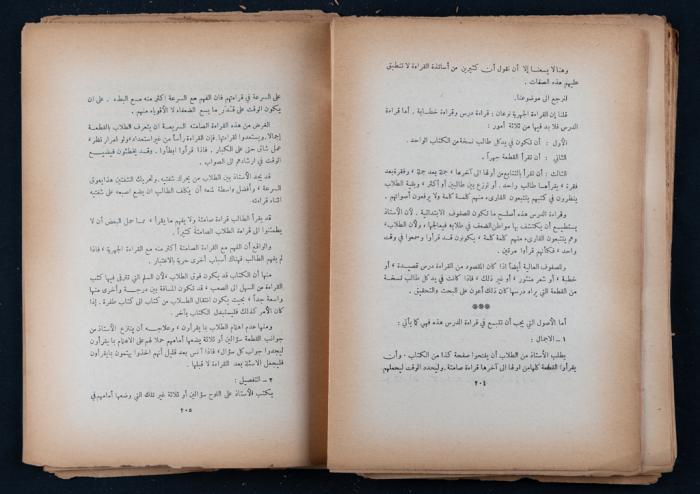 وهنا لا يسعنا إلا أن نقول أن كثيرين من أساتذة القراءة لا تنطبق
عليهم هذه الصفات .
لنرجع الى موضوعنا.
قلنا إن القراءة الجهرية نوعان : قراءة درس وقراءة خطابية . أما قراءة
الدرس فلا بد فيها من ثلاثة أمور :
الأول : أن تكون في يد كل طالب نسخة من الكتاب الواحد .
الثاني : أن تقرأ القطعة جهراً .
الثالث : أن تقرأ بالتتابع من أولها الى آخرها ، جملة بعد جملة ، وفقرة بعد
فقرة ، يقرأها طالب واحد ، أو توزع بين طالبين أو أكثر ، وبقية الطلاب
ينظرون في كتبهم يتتبعون القارىء منهم كلمة كلمة ولا يرفعون أصواتهم .
وقراءة الدرس هذه أصلح ما تكون الصفوف الابتدائية . لأن الأستاذ
يستطيع أن يكتشف بها مواطن الضعف في طلابه فيعالجها ، ولأن الطلاب
وهم يتتبعون القارىء منهم كلمة كلمة ، يكونون قد قرأوا وسمعوا في وقت
واحد ، فكأنهم قرأوا مرتين .
وللصفوف العالية أيضاً اذا كان المقصود من القراءة درس قصيدة ، أو
خطبة ، أو شعر منثور ، أو غير ذلك ، فاذا كانت في يد كل طالب نسخة
من القطعة التي يراد درسها كان ذلك أعون على البحث والتحقيق .
***
أما الأصول التي يجب أن تتبع في قراءة الدرس هذه فهي كما يأتي :
١ - الاجمال :
يطلب الأستاذ من الطلاب أن يفتحوا صفحة كذا من الكتاب . وأن
يقرأوا القطعة كلها من أولها الى آخرها قراءة صامتة . وليحدد الوقت ليحملهم
٢٠٤
على السرعة في قراءتهم فان الفهم مع السرعة أكثر منه مع البطء . على ان
يكون الوقت على قدر ما يسع الضعفاء لا الأقوياء منهم .
الغرض من هذه القراءة الصامتة السريعة ان يتعرف الطلاب بالقطعة
إجمالاً ويستعدوا لقراءتها. فإن القراءة رأساً من غير استعداد ، ولو امرار نظر ،
عملي شاق حتى على الكبار . فاذا قرأوا أبطأوا . وقد يخطئون فيضيع
الوقت في ارشادهم الى الصواب .
قد يجد الأستاذ بين الطلاب من يحرك شفتيه . وتحريك الشفتين هذا يعوق
السرعة ، وأفضل واسطة لمنعه ان يكلف الطالب ان يضع اصبعه على شفتيه
اثناء قراءته
قد يقرأ الطالب قراءة صامتة ولا يفهم ما يقرأ ، مما حمل البعض أن لا
يطمئنوا الى قراءة الطلاب الصامتة كثيراً .
والواقع أن الفهم مع القراءة الصامتة أكثر منه مع القراءة الجهرية ، فاذا
لم يفهم الطالب فهناك أسباب أخرى حرية بالاعتبار .
منها أن الكتاب قد يكون فوق الطلاب ، لأن السلم التي تترقى فيها كتب
القراءة من السهل الى الصعب ، قد تكون المسافة بين درجة وأخرى منها
واسعة جداً ، بحيث يكون انتقال الطلاب من كتاب الى كتاب طفرة . إذا
كان الأمر كذلك فليستبدل الكتاب بآخر .
ومنها عدم اهتمام الطلاب بما يقرأون ، وعلاجه أن ينتزع الأستاذ من
جوانب القطعة سؤالين أو ثلاثة يضعها أمامهم حملاً لهم على الاهتمام بما يقرأون
ليجدوا جواب كل سؤال ، فاذا أنس بعد قليل أنهم اخذوا يهتمون بما يقرأون
فليجعل الاسئلة بعد القراءة لا قبلها .
٢ - التفصيل :
يكتب الأستاذ على اللوح سؤالين أو ثلاثة غير تلك التي وضعها أمامهم في
٢٠٥